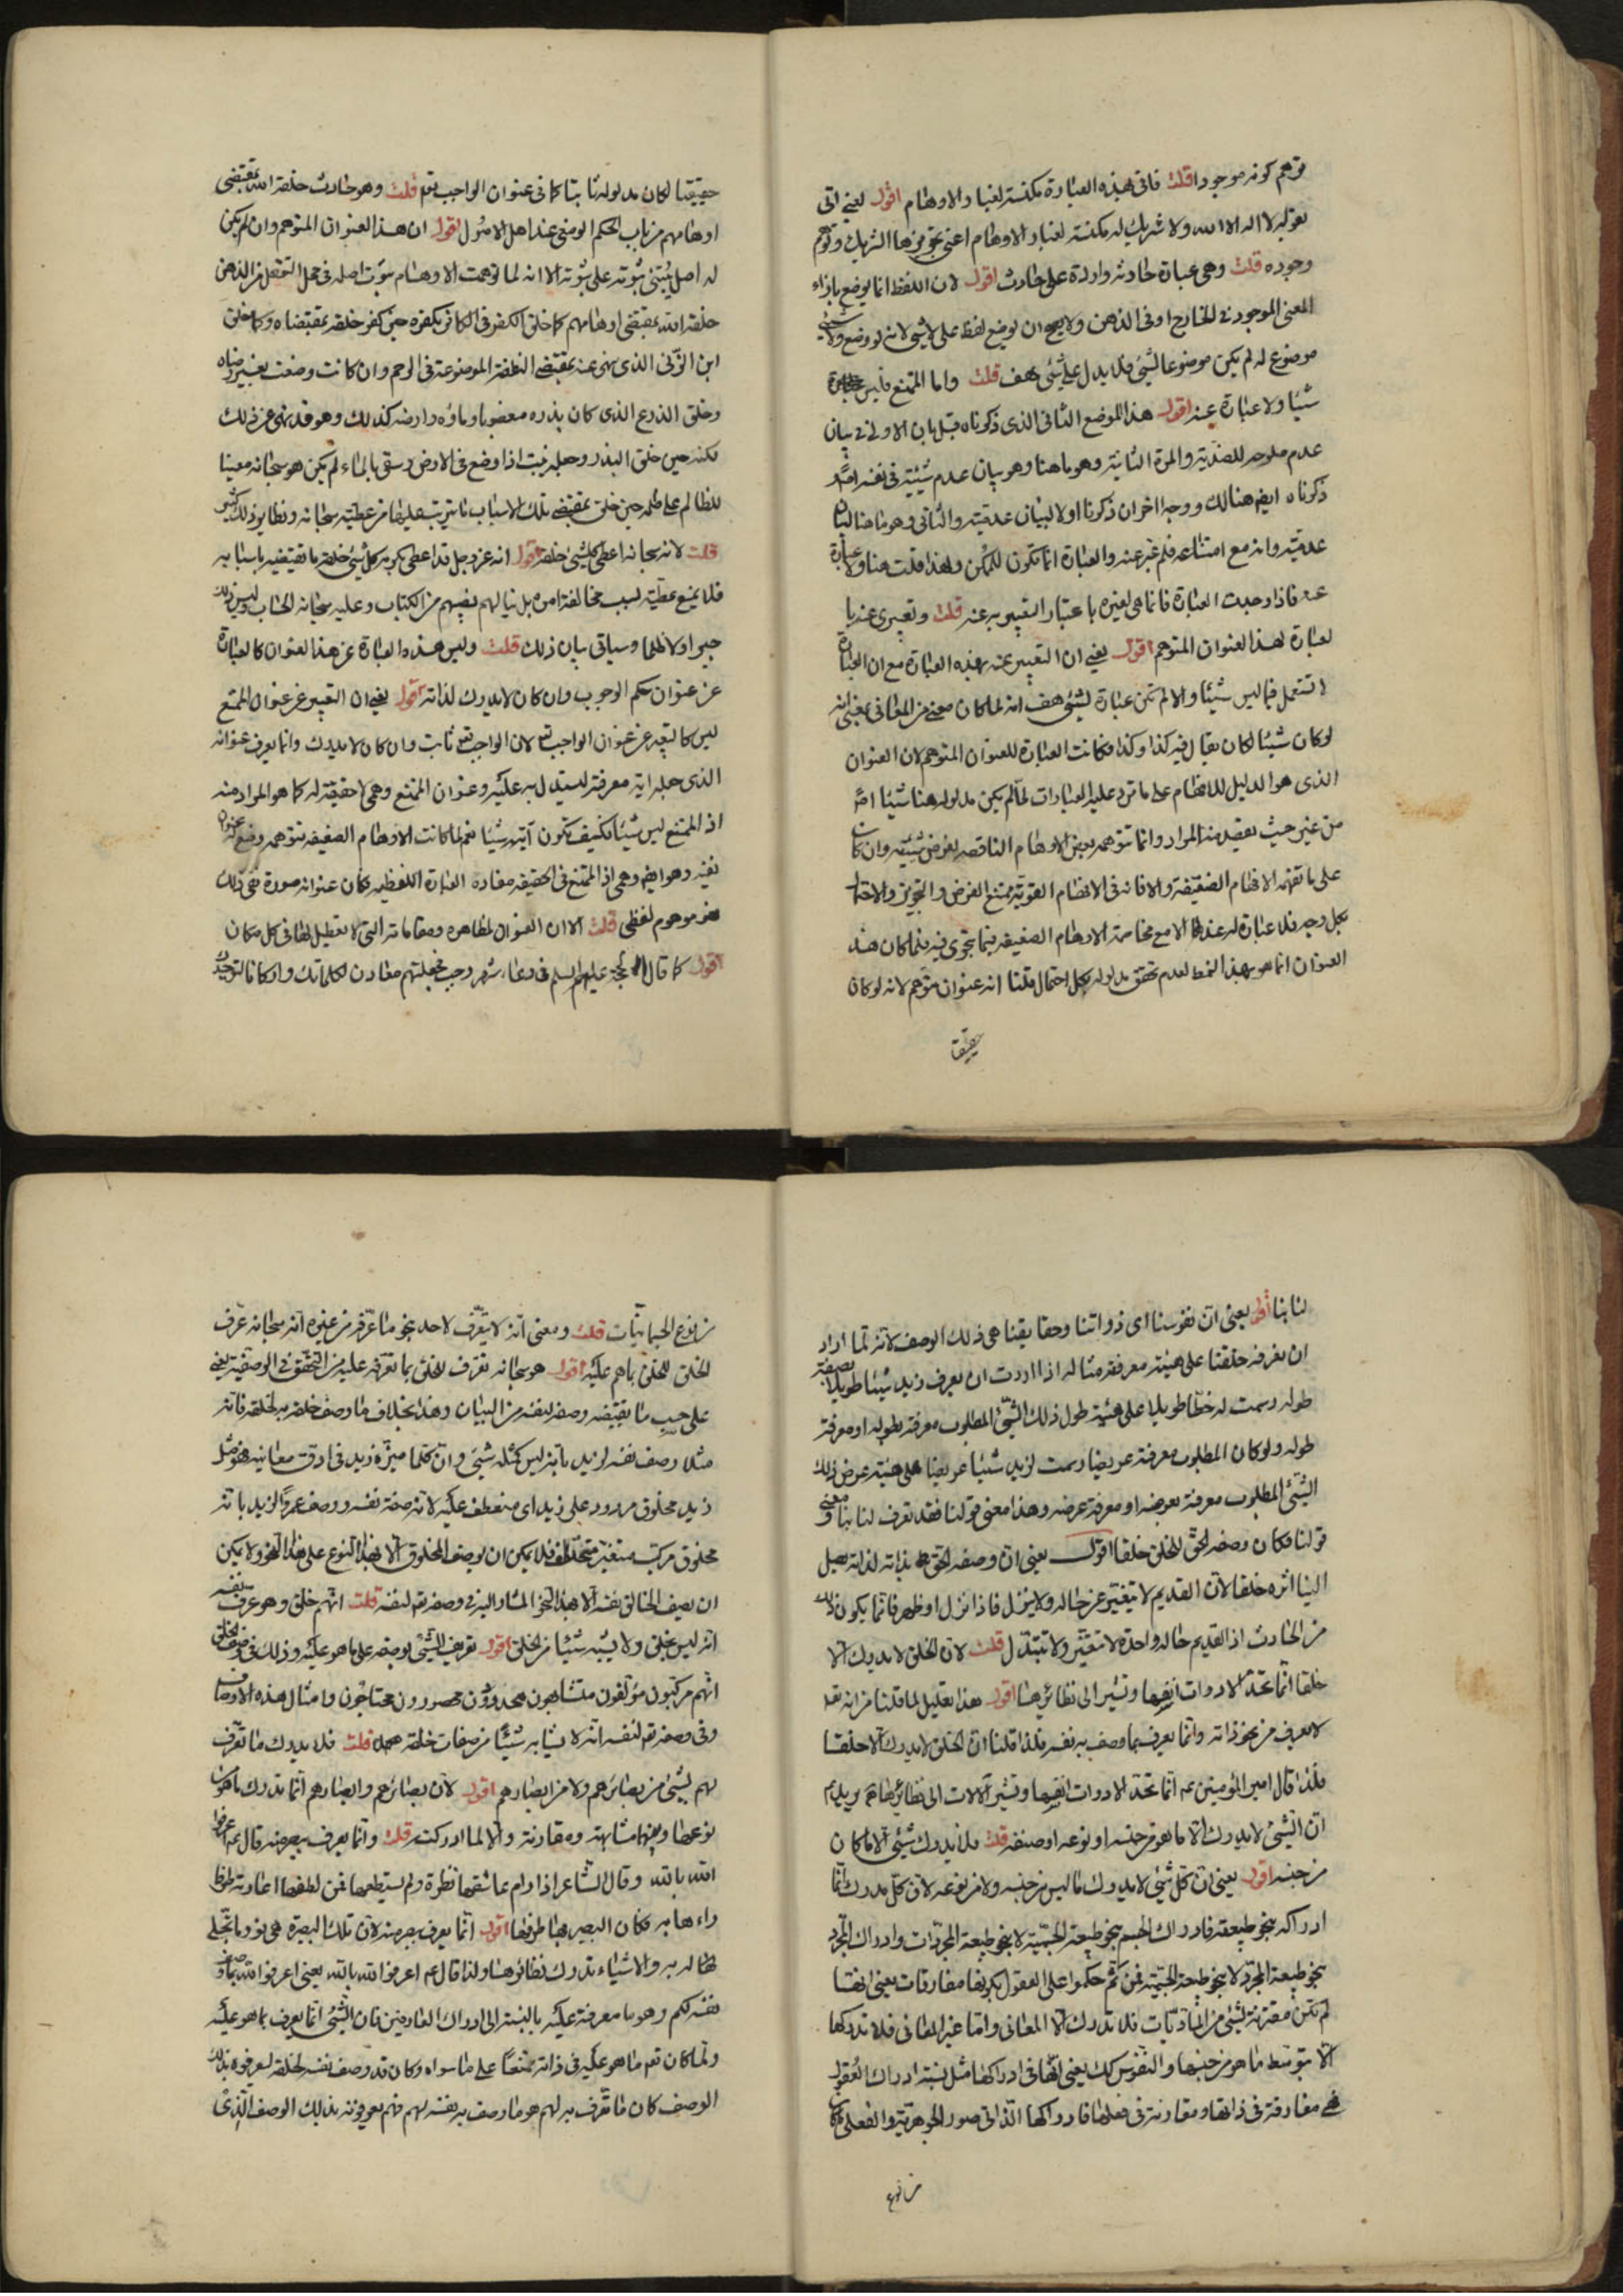 توهم كونه موجودا قلت فاتى بهذه العبارة مكنسة لغبار الاوهام اقول يعنى اتى
بقوله لا اله الا الله ولا شريك له مكنسة لغبار الاوهام اعنى تجويزها الشريك وتوهم
وجوده قلت وهى عبارة حادثة واردة على حادث اقول لان اللفظ انما يوضع بازاء
المعنى الموجود فى الخارج او فى الذهن ولا يصح ان يوضع لفظ على لا شيئ لانه لو وضع ولا شيئ
موضوع له لم يكن موضوعا لشيئ فلا يدل على شيئ هف قلت واما الممتنع فليس
شيئا ولا عبارة عنه اقول هذا الموضع الثانى الذى ذكرناه قبل بان الاولى فى بيان
عدم صلوحه للضدية والمرة الثانية وهو ما هنا وهو بيان عدم شيئيته فى نفسه
ذكرناه ايضا هنالك ووجه اخر ان ذكرنا اولا لبيان عدميته والثانى وهو ما هنا لبيان
عدميته وانه مع امتناعه فلم عبر عنه والعبارة انما تكون للممكن ولهذا قلت هنا ولا عبارة
عنه فاذا وجدت العبارة فانما هى لغيره باعتبار التعبير به عنه قلت وتعبيرى عنه با
لعبارة لهذا العنوان المتوهم اقول يعنى ان التعبير عنه بهذه العبارة مع ان العبارة
لا تستعمل فيما ليس شيئا والا لم تكن عبارة لشيئ هف انه لما كان معنى من المعانى بمعنى انه
لو كان شيئا لكان يقال فيه كذا وكذا فكانت العبارة للعنوان المتوهم لان العنوان
الذى هو الدليل للافهام على ما ترد عليه العبارات لما لم يكن مدلوله هنا شيئا
من غير حيث يقصد منه المراد وانما تتوهمه بعض الاوهام الناقصة بفرض شيئيته وان كان
على ما تفهمه الافهام الضعيفة والا فانه فى الافهام القوية ممتنع الفرض والتجويز والاحتمال
بكل وجه فلا عبارة له عندها الا مع مخاصمة الاوهام الضعيفة فيما تجرى فيه فلما كان هذا
العنوان انما هو بهذا النمط لعدم تحقق مدلوله بكل احتمال قلنا انه عنوان متوهم لانه لو كان
حقيقيا
حقيقيا لكان مدلوله ثابتا كما فى عنوان الواجب تعم قلت وهو حادث خلقه الله بمقتضى
اوهامهم من باب الحكم الوضعى عند اهل الاصول اقول ان هذا العنوان المتوهم وان لم يكن
له اصل يبتنى ثبوته على ثبوته الا انه لما توهمت الاوهام ثبوت اصله فى محل التعقل من الذهن
خلقه الله بمقتضى اوهامهم كما خلق الكفر فى الكافر بكفره حين كفر خلقه بمقتضاه وكما خلق
ابن الزنى الذى نهى عنه بمقتضى النطفة الموضوعة فى الرحم وان كانت وضعت بغير رضاه
وخلق الذرع الذى كان بذره مغصوبا وماؤه وارضه كذلك وهو قد نهى عن ذلك
لكنه حين خلق البذر وجعله ينبت اذا وضع فى الارض وسقى بالماء لم يكن هو سبحانه معينا
للظالم على ظلمه حين خلق بمقتضى تلك الاسباب ما يترتب عليها من عطيته سبحانه ونظاير ذلك كثير
قلت لانه سبحانه اعطى كل شيئ خلقه اقول انه عز وجل قد اعطى بكرمه كل شيئ خلقه ما تقتضيه باسبابه
فلا يمنع عطيته لسبب مخالفة امره بل ينالهم نصيبهم من الكتاب وعليه سبحانه الحساب وليس ذلك
جبرا ولا ظلما وسياتى بيان ذلك قلت وليس هذه العبارة عن هذا العنوان كالعبارة
عن عنوان حكم الوجوب وان كان لا يدرك لذاته اقول يعنى ان التعبير عن عنوان الممتنع
ليس كالتعبير عن عنوان الواجب تعم لان الواجب تعم ثابت وان كان لا يدرك وانما يعرف عنوانه
الذى جعله اية معرفته ليستدل به عليه وعنوان الممتنع وهمى لا حقيقة له كما هو المراد منه
اذ الممتنع ليس شيئا فكيف تكون آيته شيئا نعم لما كانت الاوهام الضعيفة تتوهمه وضع عنوان
نفيه وهو ايضا وهمى اذ الممتنع فى الحقيقة مفاده العبارة اللفظية فكان عنوانه صورة نفى ذلك
هو موهوم لفظى قلت الا ان العنوان لمظاهره ومقاماته التى لا تعطيل لها فى كل مكان
اقول كما قال الحجة عليه السلم فى دعاء شهر رجب فجعلتهم معادن لكلماتك واركانا لتوحيدك
لنا بنا اقول يعنى ان نفوسنا اى ذواتنا وحقايقنا هى ذلك الوصف لانه لما اراد
ان نعرفه خلقنا على هيئة معرفته مثاله اذا اردت ان يعرف زيد شيئا طويلا بصفة
طوله رسمت له خطا طويلا على هيئة طول ذلك الشيئ المطلوب معرفة بطوله او معرفة
طوله ولو كان المطلوب معرفة عريضا رسمت لزيد شيئا عريضا على هيئة عرض ذلك
الشيئ المطلوب معرفة بعرضه او معرفة عرضه وهذا معنى قولنا فقد تعرف لنا بنا ومعنى
قولنا فكان وصفه الحق للخلق خلقا اقول يعنى ان وصفه الحق بذاته لذاته يصل
الينا اثره خلقا لان القديم لا يتغير عن حاله ولا ينزل فاذا نزل او ظهر فانما يكون ذلك
من الحادث اذ القديم حاله واحدة لا تتغير ولا تتبدل قلت لان الخلق لا يدرك الا
خلقا انما تحد الادوات انفسها وتشير الى نظائرها اقول هذا تعليل لما قلنا من انه تعم
لا يعرف من نحو ذاته وانما يعرف بما وصف به نفسه فلذا قلنا ان الخلق لا يدرك الا خلقا
فلذا قال امير المؤمنين عم انما تحد الادوات انفسها وتشير الالات الى نظائرها يريد عم
ان الشيئ لا يدرك الا ما هو من جنسه او نوعه او صنفه قلت فلا يدرك شيئ الا ما كان
من جنسه اقول يعنى ان كل شيئ لا يدرك ما ليس من جنسه ولا من نوعه لان كل مدرك انما
ادراكه بنحو طبيعته فادراك الجسم بنحو طبيعة الجسمية لا بنحو طبيعة المجردات وادراك المجرد
بنحو طبيعة المجرد لا بنحو طبيعة الجسمية فمن ثم حكموا على العقول بكونها مفارقات يعنى انها
لم تكن مقترنة بشيئ من الماديات فلا تدرك الا المعانى واما غير المعانى فلا تدركها
الا بتوسط ما هو من جنسها والنفوس كك يعنى انها فى ادراكها مثل نسبة ادراك العقول
فهى مفارقة فى ذاتها ومقارنة فى فعلها فادراكها الذاتى صور الجوهرية والفعلى كان
من نوع
من نوع الجسمانيات قلت ومعنى انه لا يعرف لاحد بنحو ما عرف من غيره انه سبحانه عرف
الخلق للخلق بما هم عليه اقول هو سبحانه تعرف للخلق بما تعرفه عليه من التحقق فى الوصفية يعنى
على حسب ما يقتضيه وصفه لنفسه من البيان وهذا بخلاف ما وصف خلقه به لخلقه فانه
مثلا وصف نفسه لزيد بانه ليس كمثله شيئ وان كلما ميزه زيد فى ادق معانيه فهو مثل
زيد مخلوق مردود على زيد اى منعطف عليه لانه صفة نفسه ووصف عمرا لزيد بانه
مخلوق مركب متغير مختلف فلا يمكن ان يوصف المخلوق الا بهذا النوع على هذا النحو ولا يمكن
ان يصف الخالق نفسه الا بهذا النحو المشار اليه فى وصفه تعم لنفسه قلت انهم خلق وهو عرف نفسه
انه ليس بخلق ولا يشبه شيئا من الخلق اقول تعريف الشيئ بوصفه على ما هو عليه وذلك فى وصف الخلق
انهم مركبون مؤلفون متشابهون محدودون محصورون محتاجون وامثال هذه الاوصاف
وفى وصفه تعم لنفسه انه لا يشابه شيئا من صفات خلقه قلت فلا يدرك ما تعرف
لهم بشيئ من بصائرهم ولا من ابصارهم اقول لان بصائرهم وابصارهم انما تدرك ما هو من
نوعها وبينهما مشابهة ومقارنة والا لما ادركت قلت وانما يعرف ببصر منه قال عم اعرفوا
الله بالله وقال الشاعر اذا رام عاشقها نظرة ولم يستطعها فمن لطفها اعارته طرفا
راءها به فكان البصير بها طرفها اقول انما يعرف ببصر منه لان تلك البصيرة هى نور ما تجلى
لها له به والاشياء تدرك نظائرها ولذا قال عم اعرفوا الله بالله يعنى اعرفوا الله بما وصف
نفسه لكم وهو ما معرفته عليه بالنسبة الى ادراك العارفين فان الشيئ انما يعرف بما هو عليه
ولما كان تعم ما هو عليه فى ذاته ممتنعا على ما سواه وكان قد وصف نفسه لخلقه ليعرفوه بذلك
الوصف كان ما تعرف به لهم هو ما وصف به نفسه لهم فهم يعرفونه بذلك الوصف الذى